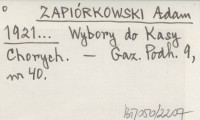 ZAPIÓRKOWSKI Adam
1921... Wybory do Kasy
Chorych. — Gaz. Podh. 9,
nr 40.